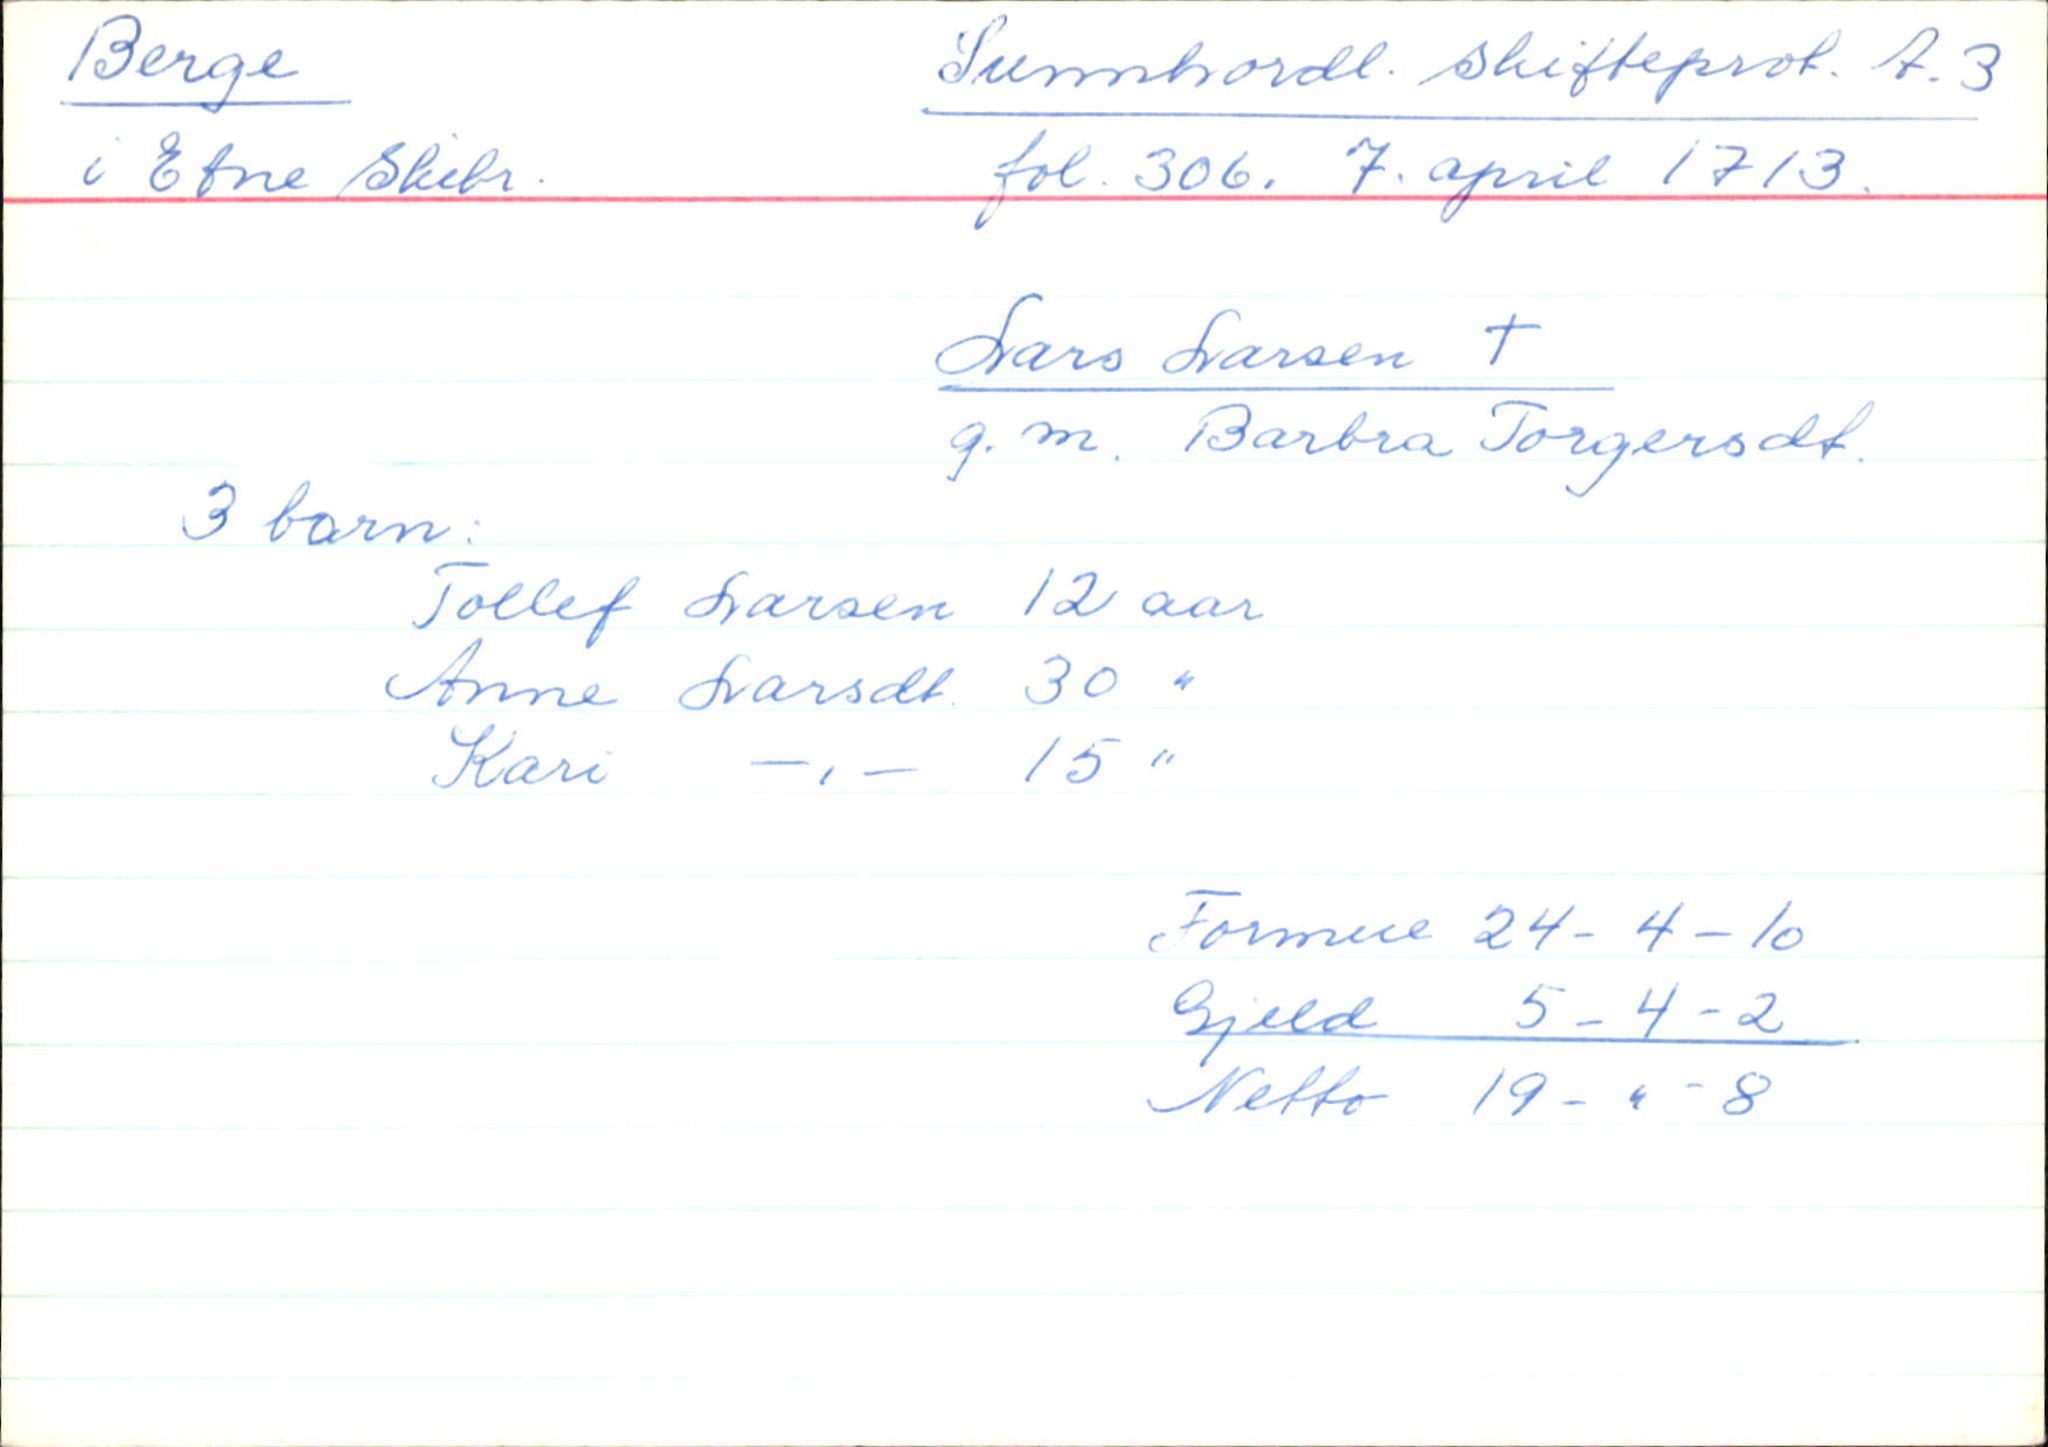 Berge
Sunnhordl. skifteprot. A.3
i Etne Skibr.
fol. 306. 7. april 1713.
Lars Larsen †
g. m. Barbra Torgersdt.
3 barn:
Tollef Larsen 12 aar
Anne Larsdt. 30 "
Kari —„— 15 "
Formue 24 - 4 - 10
Gjeld 5 - 4 - 2
Netto 19 - " - 8